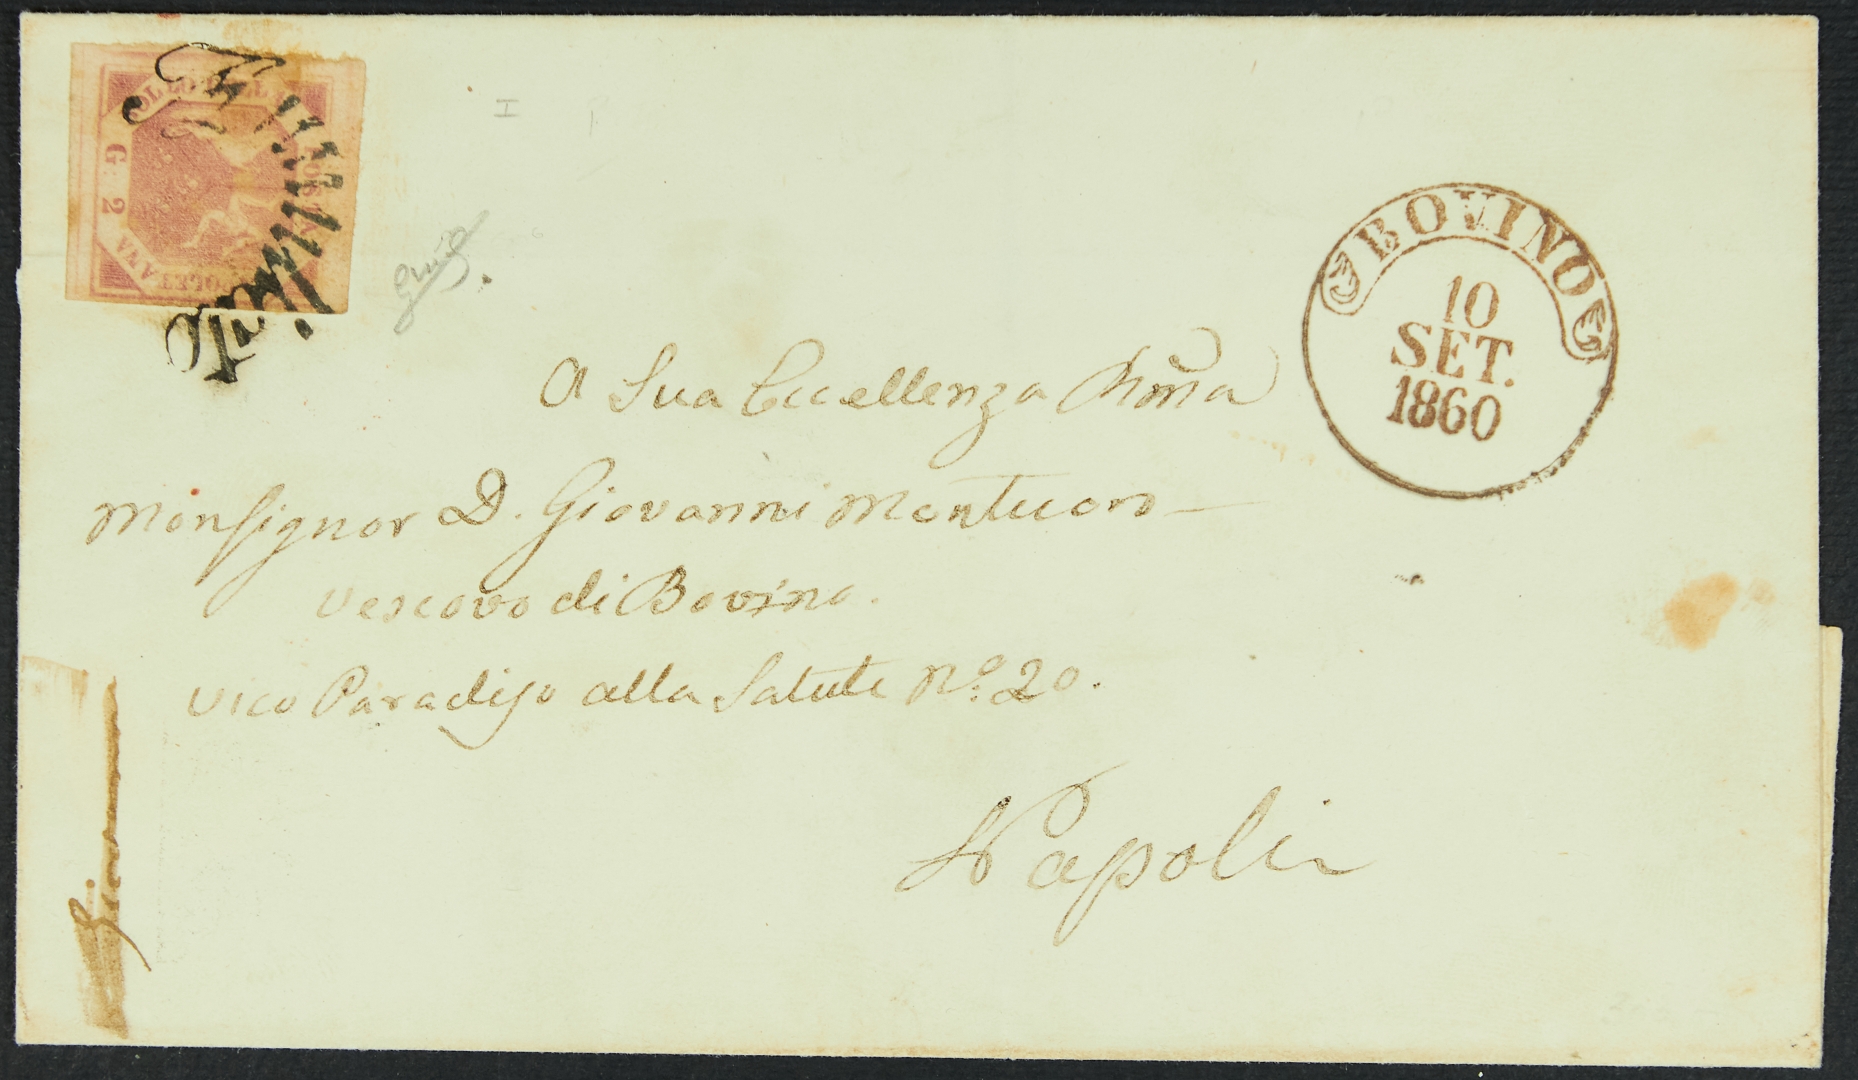 BOLLO DELLA POSTA NAPOLETANA
G. 2
Annullato
BOVINO
10
SET.
1860
A Sua Eccellenza Rma
Monsignor D. Giovanni Montuoro
Vescovo di Bovino.
Vico Paradiso alla Salute No. 20.
Napoli